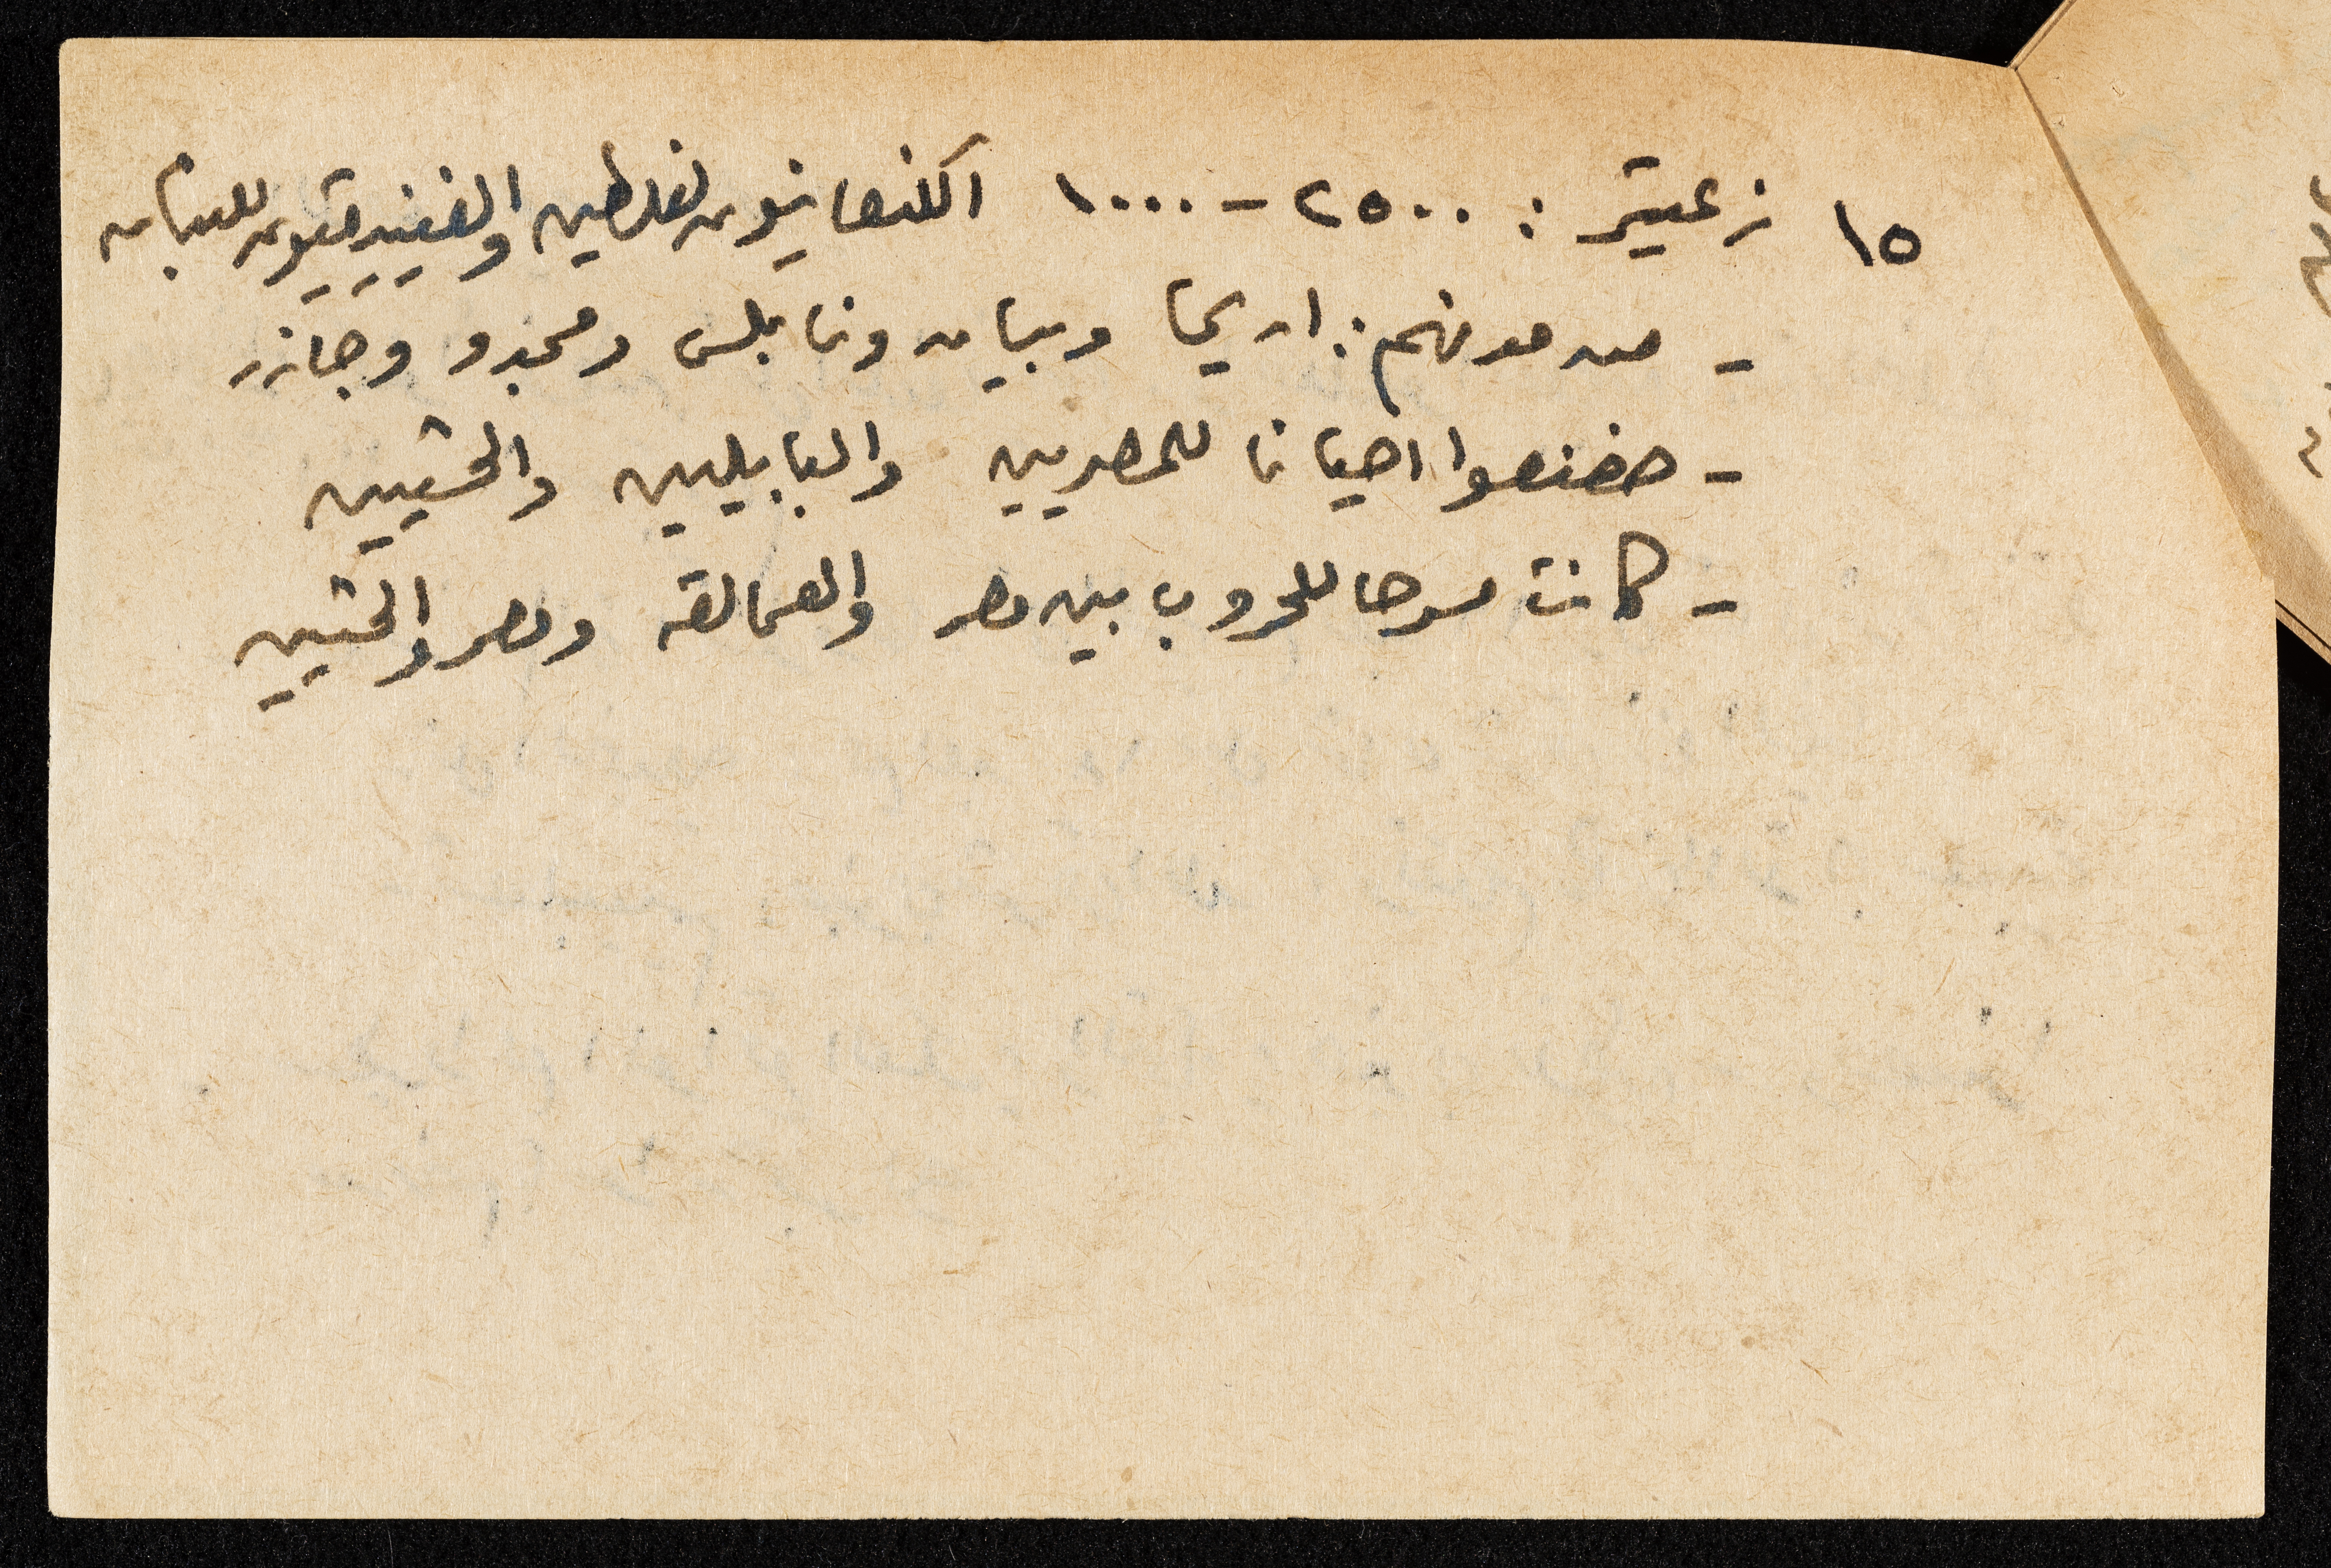 ١٥ زعيتر : ٢٥٠٠ - ١٠٠٠ الكنعانيون لفلسطين والفينيقيون للبنان
- من مدنهم : اريحا وبيسان ونابلس ومجدو وجازر
- خضعوا احيانا للمصريين والبابليين والحثيين
- كانت مسرحا للحروب بين مصر والعمالقه ومصر والحثيين